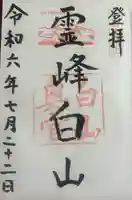 登拝
霊峰白山
令和六年七月二十二日